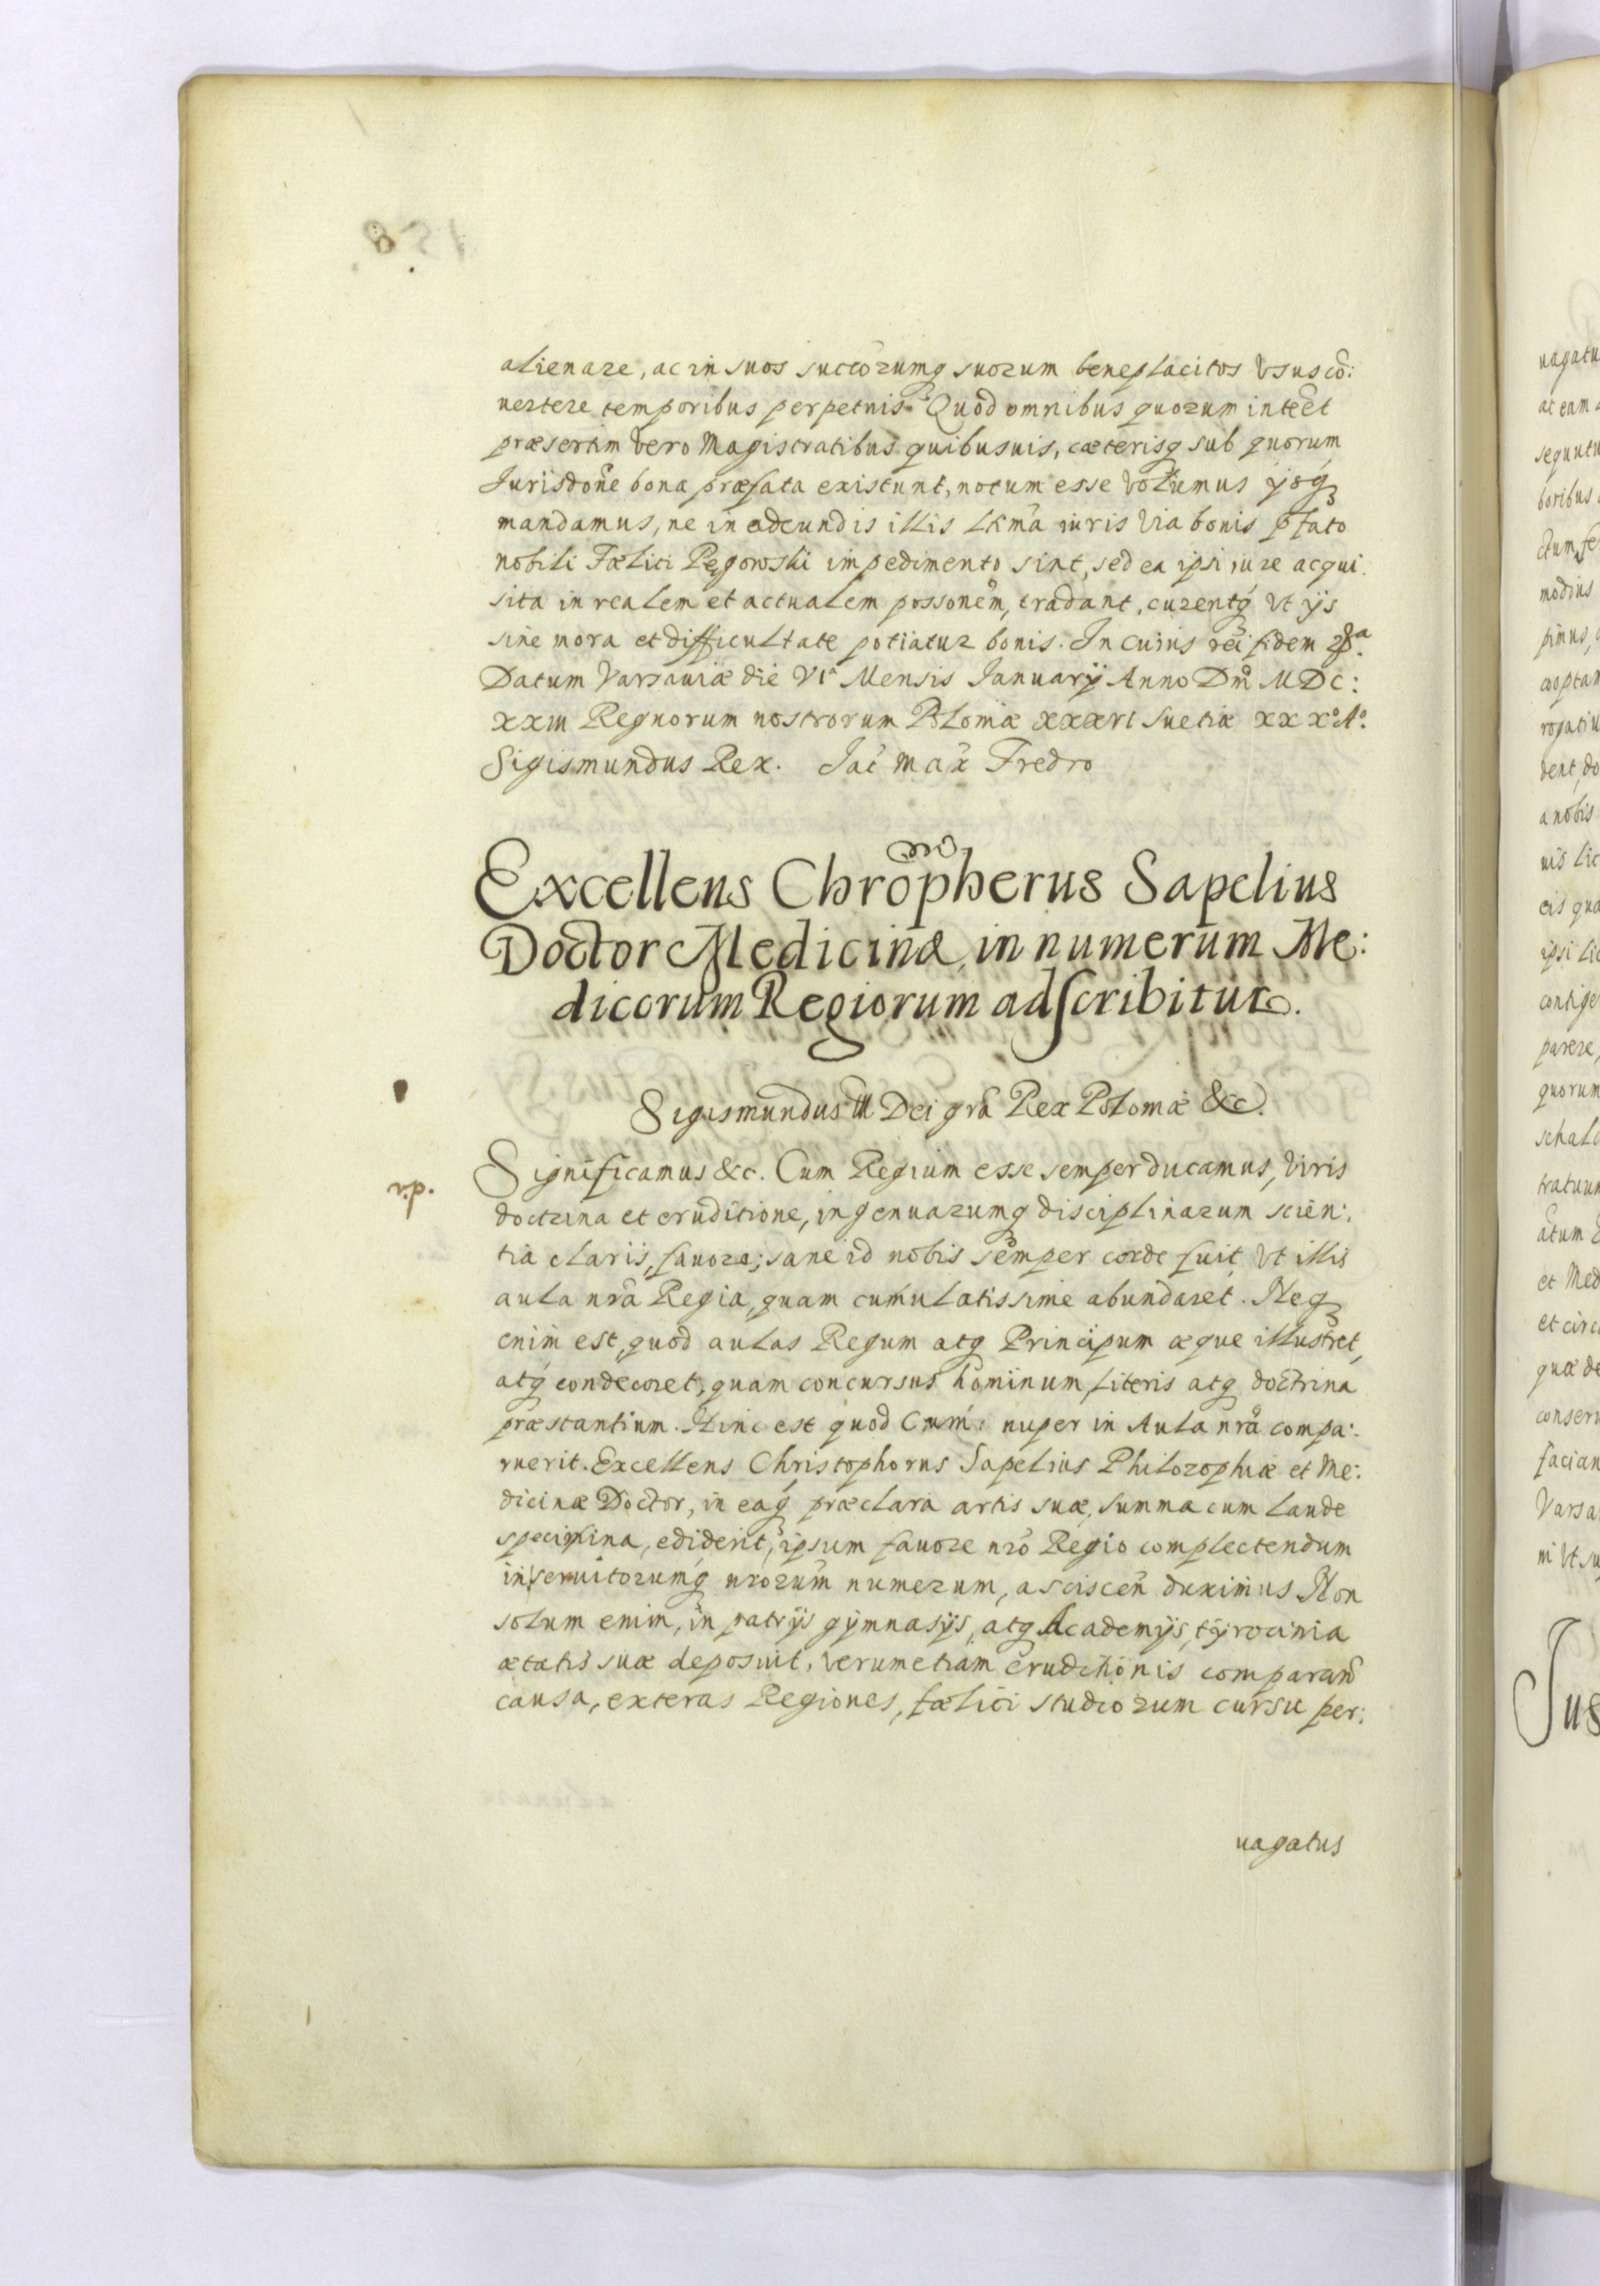 alienare, ac in suos succorumq suorum beneplacitos Vsus cō:
uertere temporibus perpetuis. Quod omnibus quorum inteēt
præsertim vero Magistratibus quibusuis, cæterisq sub quorum
Jurisdoñe bona præfata existunt, notum esse volumus ijsq
mandamus, ne in adeundis illis Lñma iuris Via bonis pfato
nobili Fælici Pęgowski impedimento sint, sed ea ipsi iure acqui:
sita in realem et actualem possonem, tradant, curentq Vt ijs
sine mora et difficultate potiatur bonis. In cuius rei fidem
Datum Varsauiæ die VIa Mensis Januarij Anno Dni MDC:
XXIII Regnorum nostrorum Poloniæ XXXVI Suetiæ XXXo Ao
Sigismundus Rex. Jac Max Fredro
Excellens Chropherus Sapelius
Doctor Medicinæ in numerum Me:
dicorum Regiorum adscribitur.
Sigismundus III Dei gra Rex Poloniæ &c.
Significamus &c. Cum Regium esse semper ducamus, Viris
v.p.
doctrina et eruditione, ingenuarumq disciplinarum scien:
tia claris, fauore; sane id nobis semper cordi fuit, Vt illis
aula nra Regia, quam cumulatissime abundaret. Neq
enim est, quod aulas Regum atq Principum æque illustret,
atq condecoret, quam concursus hominum literis atq doctrina
præstantium. Hinc est quod Cum: nuper in Aula nra compa:
ruerit. Excellens Christophorus Sapelius Philozophiæ et Me:
dicinæ Doctor, in eaq præclara artis suæ, summa cum laude
specimina, ediderit, ipsum fauore nro Regio complectendum
inseruitorumq nrorum numerum, asciscen duximus Non
solum enim, in patrijs gymnasijs, atq Academijs, tyrocinia
ætatis suæ deposuit, verumetiam eruditionis comparañ
causa, exteras Regiones, fælici studiorum cursu per:
uagatus